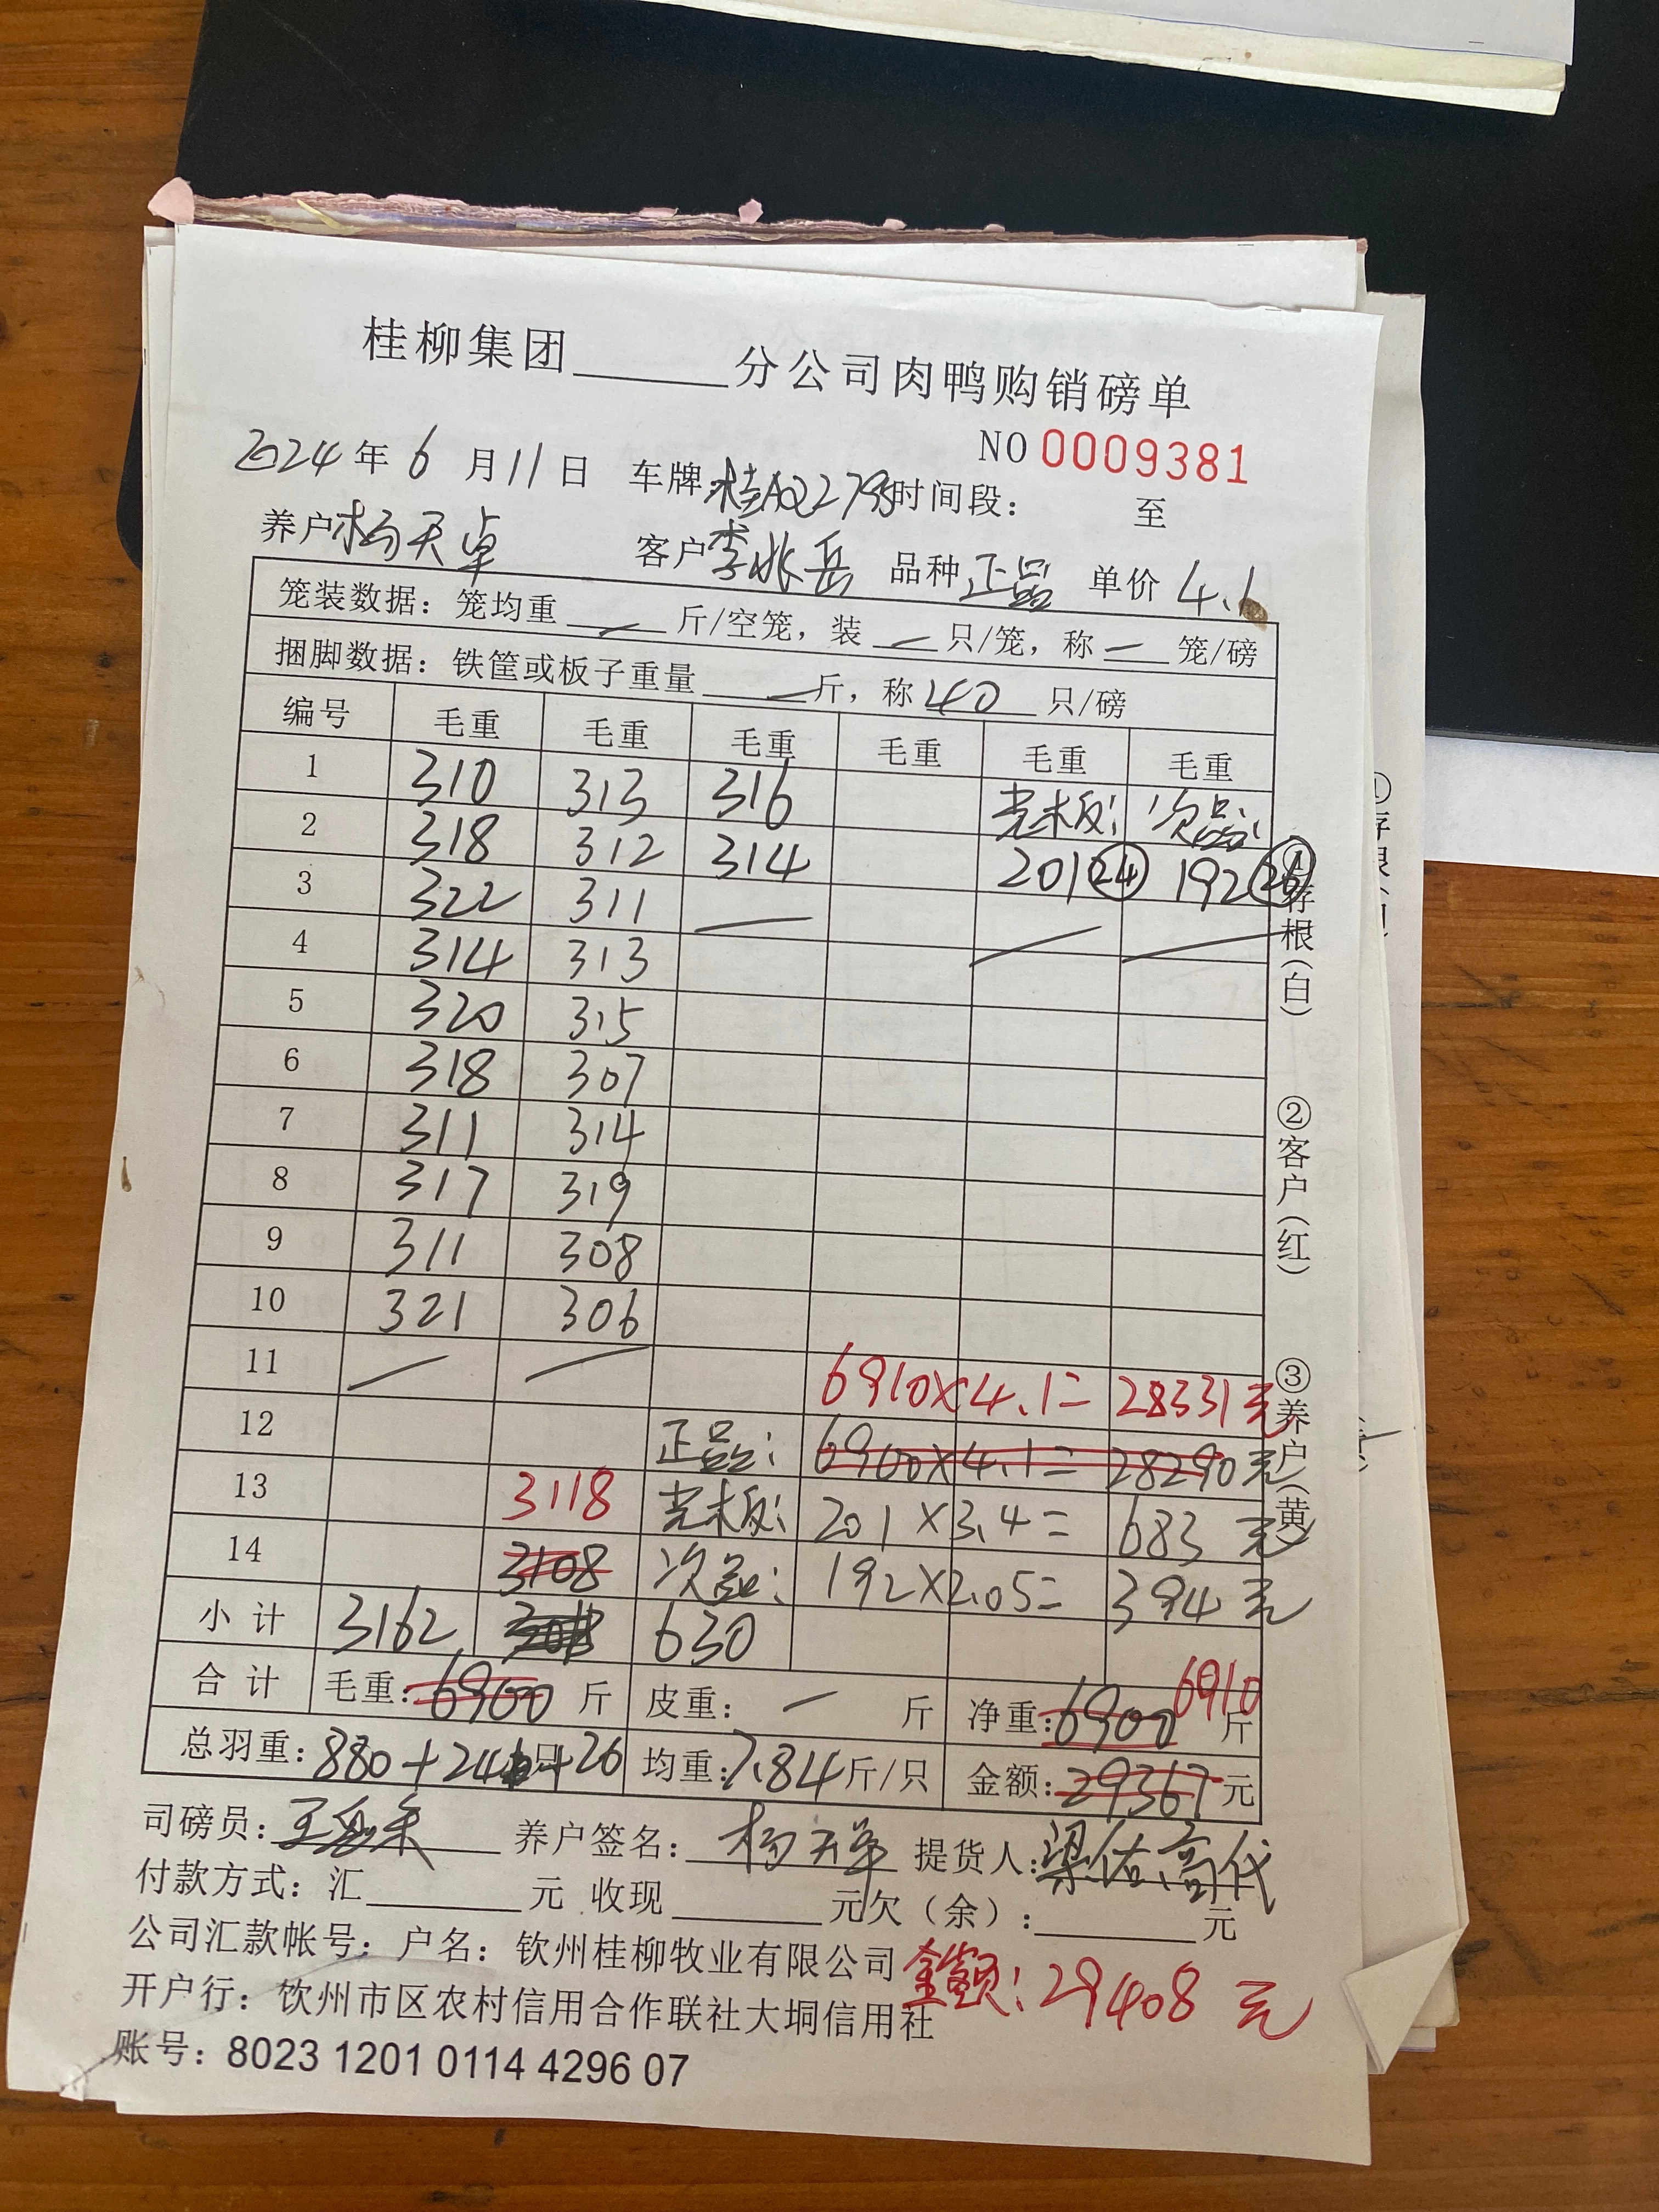 桂柳集团______分公司肉鸭购销磅单
NO 0009381
2024年 6 月 11 日 车牌: 时间段： 至
养户 杨天卓 客户 李兆岳 品种 正品 单价 4.1
笼装数据：笼均重 — 斤/空笼，装 — 只/笼，称 — 笼/磅
捆脚数据：铁筐或板子重量 — 斤，称 40 只/磅
编号 毛重 毛重 毛重 毛重 毛重 毛重
1 310 313 316 光木板: 次品:
2 318 312 314 201 24 192 26
3 322 311 —
4 314 313
5 320 315
6 318 307
7 311 314
8 317 319
9 311 308
10 321 306
11 6910×4.1= 28331元
12 正品: 6900×4.1= 28290元
13 3118 光木板: 201×3.4= 683元
14 3108 次品: 192×2.05= 394元
小计 3162 630
合计 毛重: 6900 斤 皮重： — 斤 净重: 6900 6910 斤
总羽重: 880+24只+26 均重: 7.84斤/只 金额: 29367元
司磅员: 养户签名: 提货人:
付款方式：汇______元 收现______元欠（余）:______元
公司汇款帐号：户名：钦州桂柳牧业有限公司
金额: 29408元
开户行：钦州市区农村信用合作联社大垌信用社
账号：8023 1201 0114 4296 07
①存根（白）
②客户（红）
③养户（黄）